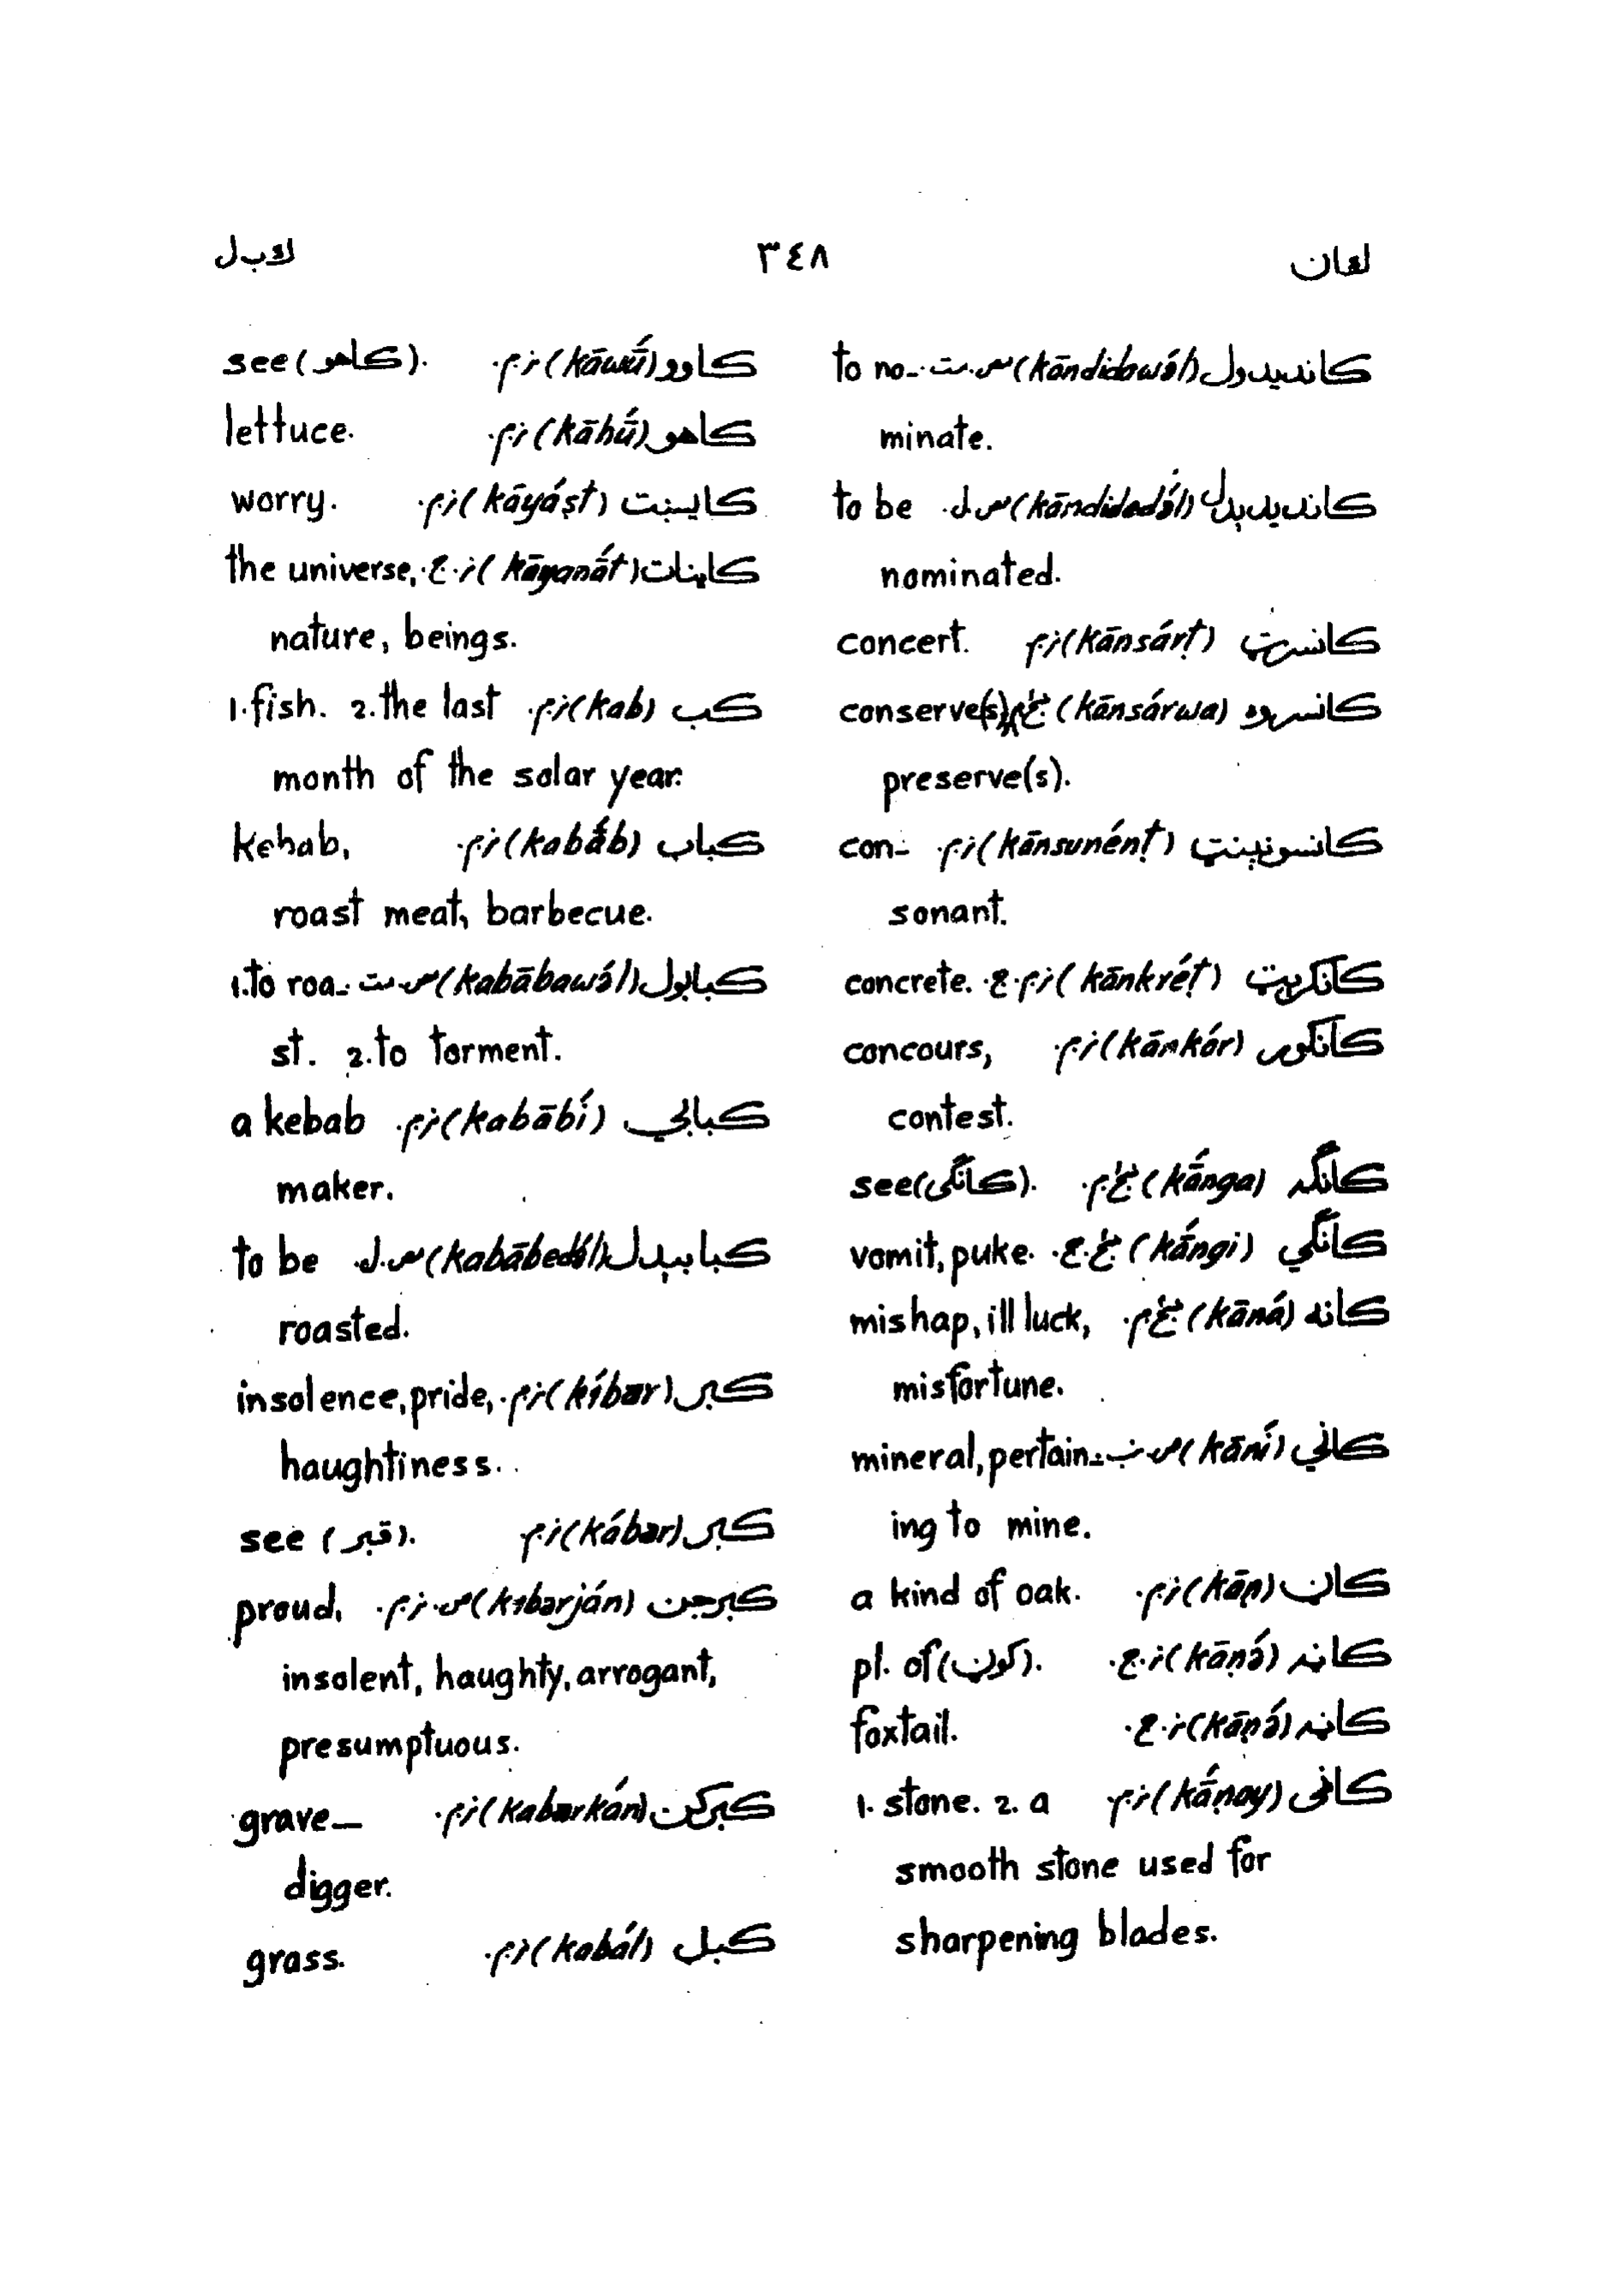 کان ٣٤٨ کبل
کاندیدول (kāndidawə́l) مص.مت. to no-
minate.
کاندیدېدل (kāndidedə́l) مص.ل. to be
nominated.
کانسرټ (kānsárṭ) نر.م. concert.
کانسروه (kānsárwa) conserve(s),
preserve(s).
کانسونېنټ (kānsunénṭ) نر.م. con-
sonant.
کانکرېټ (kānkréṭ) نر.م.ج. concrete.
کانکور (kānkór) نر.م. concours,
contest.
کانګه (kā́nga) ښځ.م. see (کانګی).
کانګي (kā́ngi) ښځ.ج. vomit, puke.
کانه (kāná) ښځ.م. mishap, ill luck,
misfortune.
کاني (kāní) ص.نس. mineral, pertain-
ing to mine.
کاڼ (kāṇ) نر.م. a kind of oak.
کاڼه (kāṇə́) نر.ج. pl. of (کوڼ).
کاڼه (kāṇə́) نر.ج. foxtail.
کاڼی (kā́ṇay) نر.م. 1. stone. 2. a
smooth stone used for
sharpening blades.
کاوو (kāwú) نر.م. see (کاهو).
کاهو (kāhú) نر.م. lettuce.
کایښت (kāyáṣt) نر.م. worry.
کاینات (kāyanā́t) نر.ج. the universe,
nature, beings.
کب (kab) نر.م. 1. fish. 2. the last
month of the solar year.
کباب (kabā́b) نر.م. kebab,
roast meat, barbecue.
کبابول (kabābawə́l) مص.مت. 1. to roa-
st. 2. to torment.
کبابي (kabābí) نر.م. a kebab
maker.
کبابېدل (kabābedə́l) مص.ل. to be
roasted.
کبر (kíbər) نر.م. insolence, pride,
haughtiness.
کبر (kábər) نر.م. see (قبر).
کبرجن (kibərján) ص.نر.م. proud,
insolent, haughty, arrogant,
presumptuous.
کبرکن (kabərkán) نر.م. grave-
digger.
کبل (kabál) نر.م. grass.